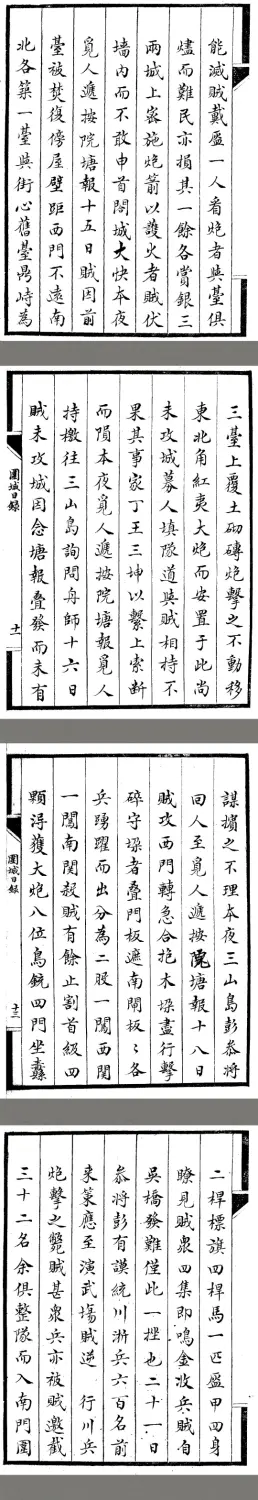 能滅賊戴盔一人看炮者與臺俱
燼而難民亦損其一餘各賞銀三
兩城上密施炮箭以護火者賊伏
墻內而不敢申首閤城大快本夜
覓人遞按院塘報十五日賊因前
臺被焚復傍屋壁距西門不遠南
北各築一臺與街心舊臺鼎峙為
三臺上覆土砌磚炮擊之不動移
東北角紅夷大炮而安置于此尚
未攻城募人填隊道與賊相持不
果其事家丁王三坤以繫上索斷
而隕本夜覓人遞按院塘報覓人
持檄往三山島詢問舟師十六日
賊未攻城因念塘報疊發而未有
圍城日錄
十一
謀擯之不理本夜三山島彭叅將
回人至覓人遞按院塘報十八日
賊攻西門轉急合抱木垜盡行擊
碎守垜者疊門板遮南閘板〻各
兵踴躍而出分為二股一闖西關
一闖南関殺賊有餘止割首級四
顆淂獲大炮八位鳥銃四門坐纛
圍城日錄
十三
二桿標旗四桿馬一匹盔甲四身
瞭見賊衆四集即鳴金收兵賊自
吳橋發難僅此一挫也二十一日
叅將彭有謨統川浙兵六百名前
來策應至演武塲賊逆 行川兵
炮擊之斃賊甚衆兵亦被賊邀截
三十二名余俱整隊而入南門圍